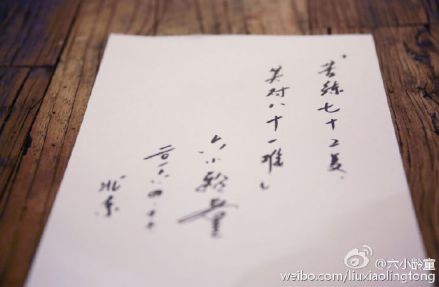 “苦练七十二变
笑对八十一难”
六小龄童
二〇一六
北京
@六小龄童
weibo.com/liuxiaolingtong